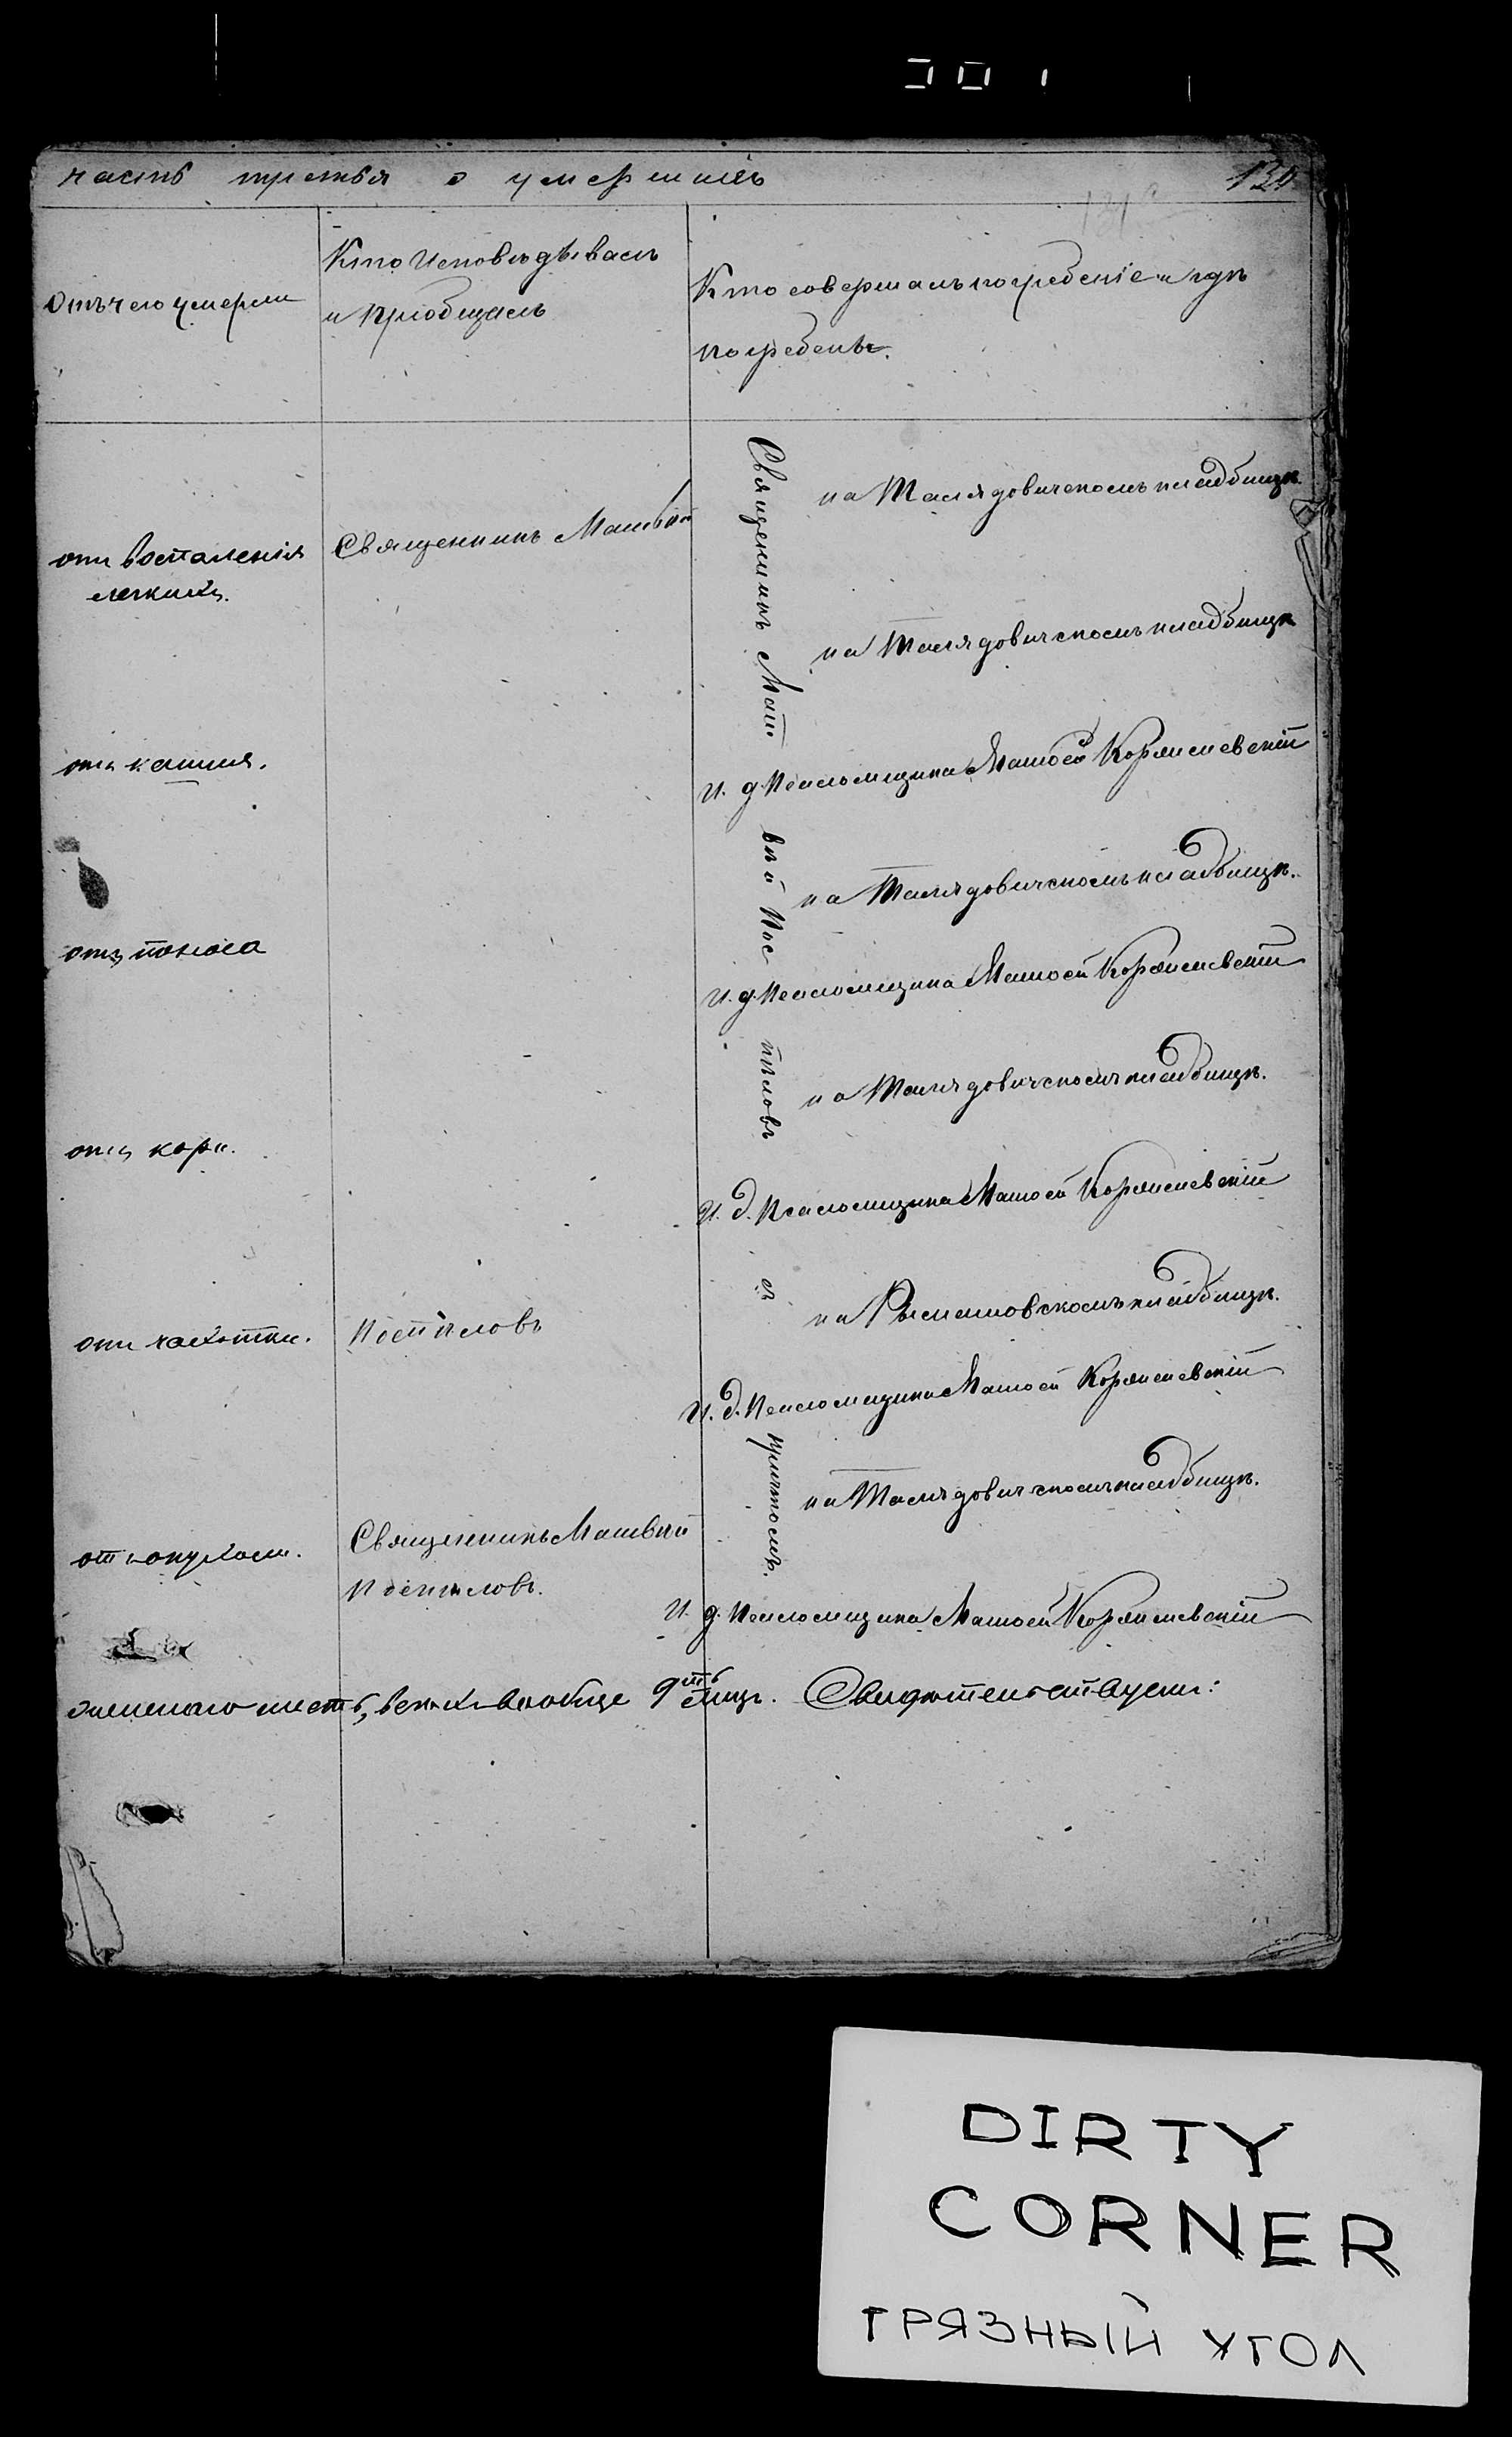 часть третья о умершихъ
130
131
Отъ чего умерли
Кто исповѣдывалъ
и пріобщалъ
Кто совершалъ погребеніе и гдѣ
погребены.
отъ воспаленія
легкихъ.
Священникъ Матвѣй
Священникъ Мат
на Талядовичскомъ кладбищѣ.
на Талядовичскомъ кладбищѣ
отъ кашля.
И. д. Псаломщика Матѳей
вѣй Пос
на Талядовичскомъ кладбищѣ.
отъ поноса
И. д. Псаломщика Матѳей
пѣловъ
на Талядовичскомъ кладбищѣ.
отъ кори.
И. д. Псаломщика Матѳей
съ
на кладбищѣ.
отъ чахотки.
Поспѣловъ
И. д. Псаломщика Матѳей
причтомъ.
на Талядовичскомъ кладбищѣ.
отъ опухоли.
Священникъ Матвѣй
Поспѣловъ.
И. д. Псаломщика Матѳей
женскаго шесть, всѣхъ вообще 9ть лицъ. Свидѣтельствуемъ:
DIRTY
CORNER
ГРЯЗНЫЙ УГОЛ